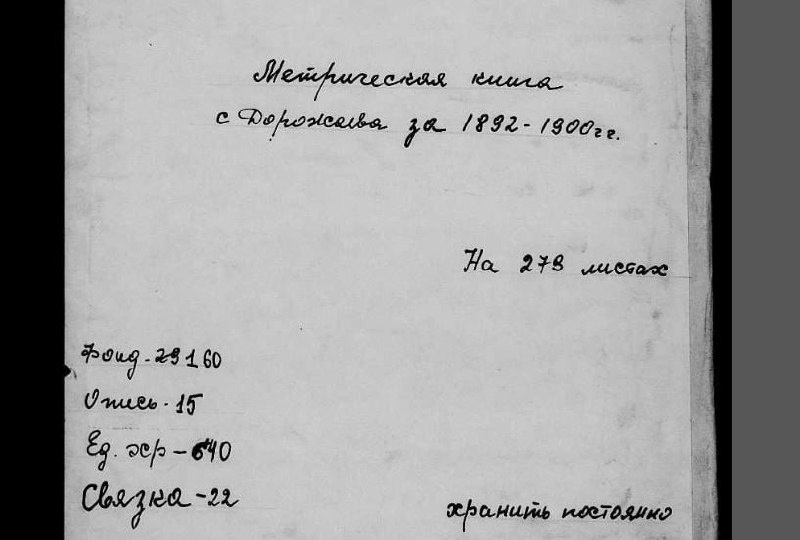 Метрическая книга
с Дорожаева за 1892-1900гг.
На 279 листах
Фонд - 160
Опись - 15
Ед. хр - 640
Связка - 22
хранить постоянно